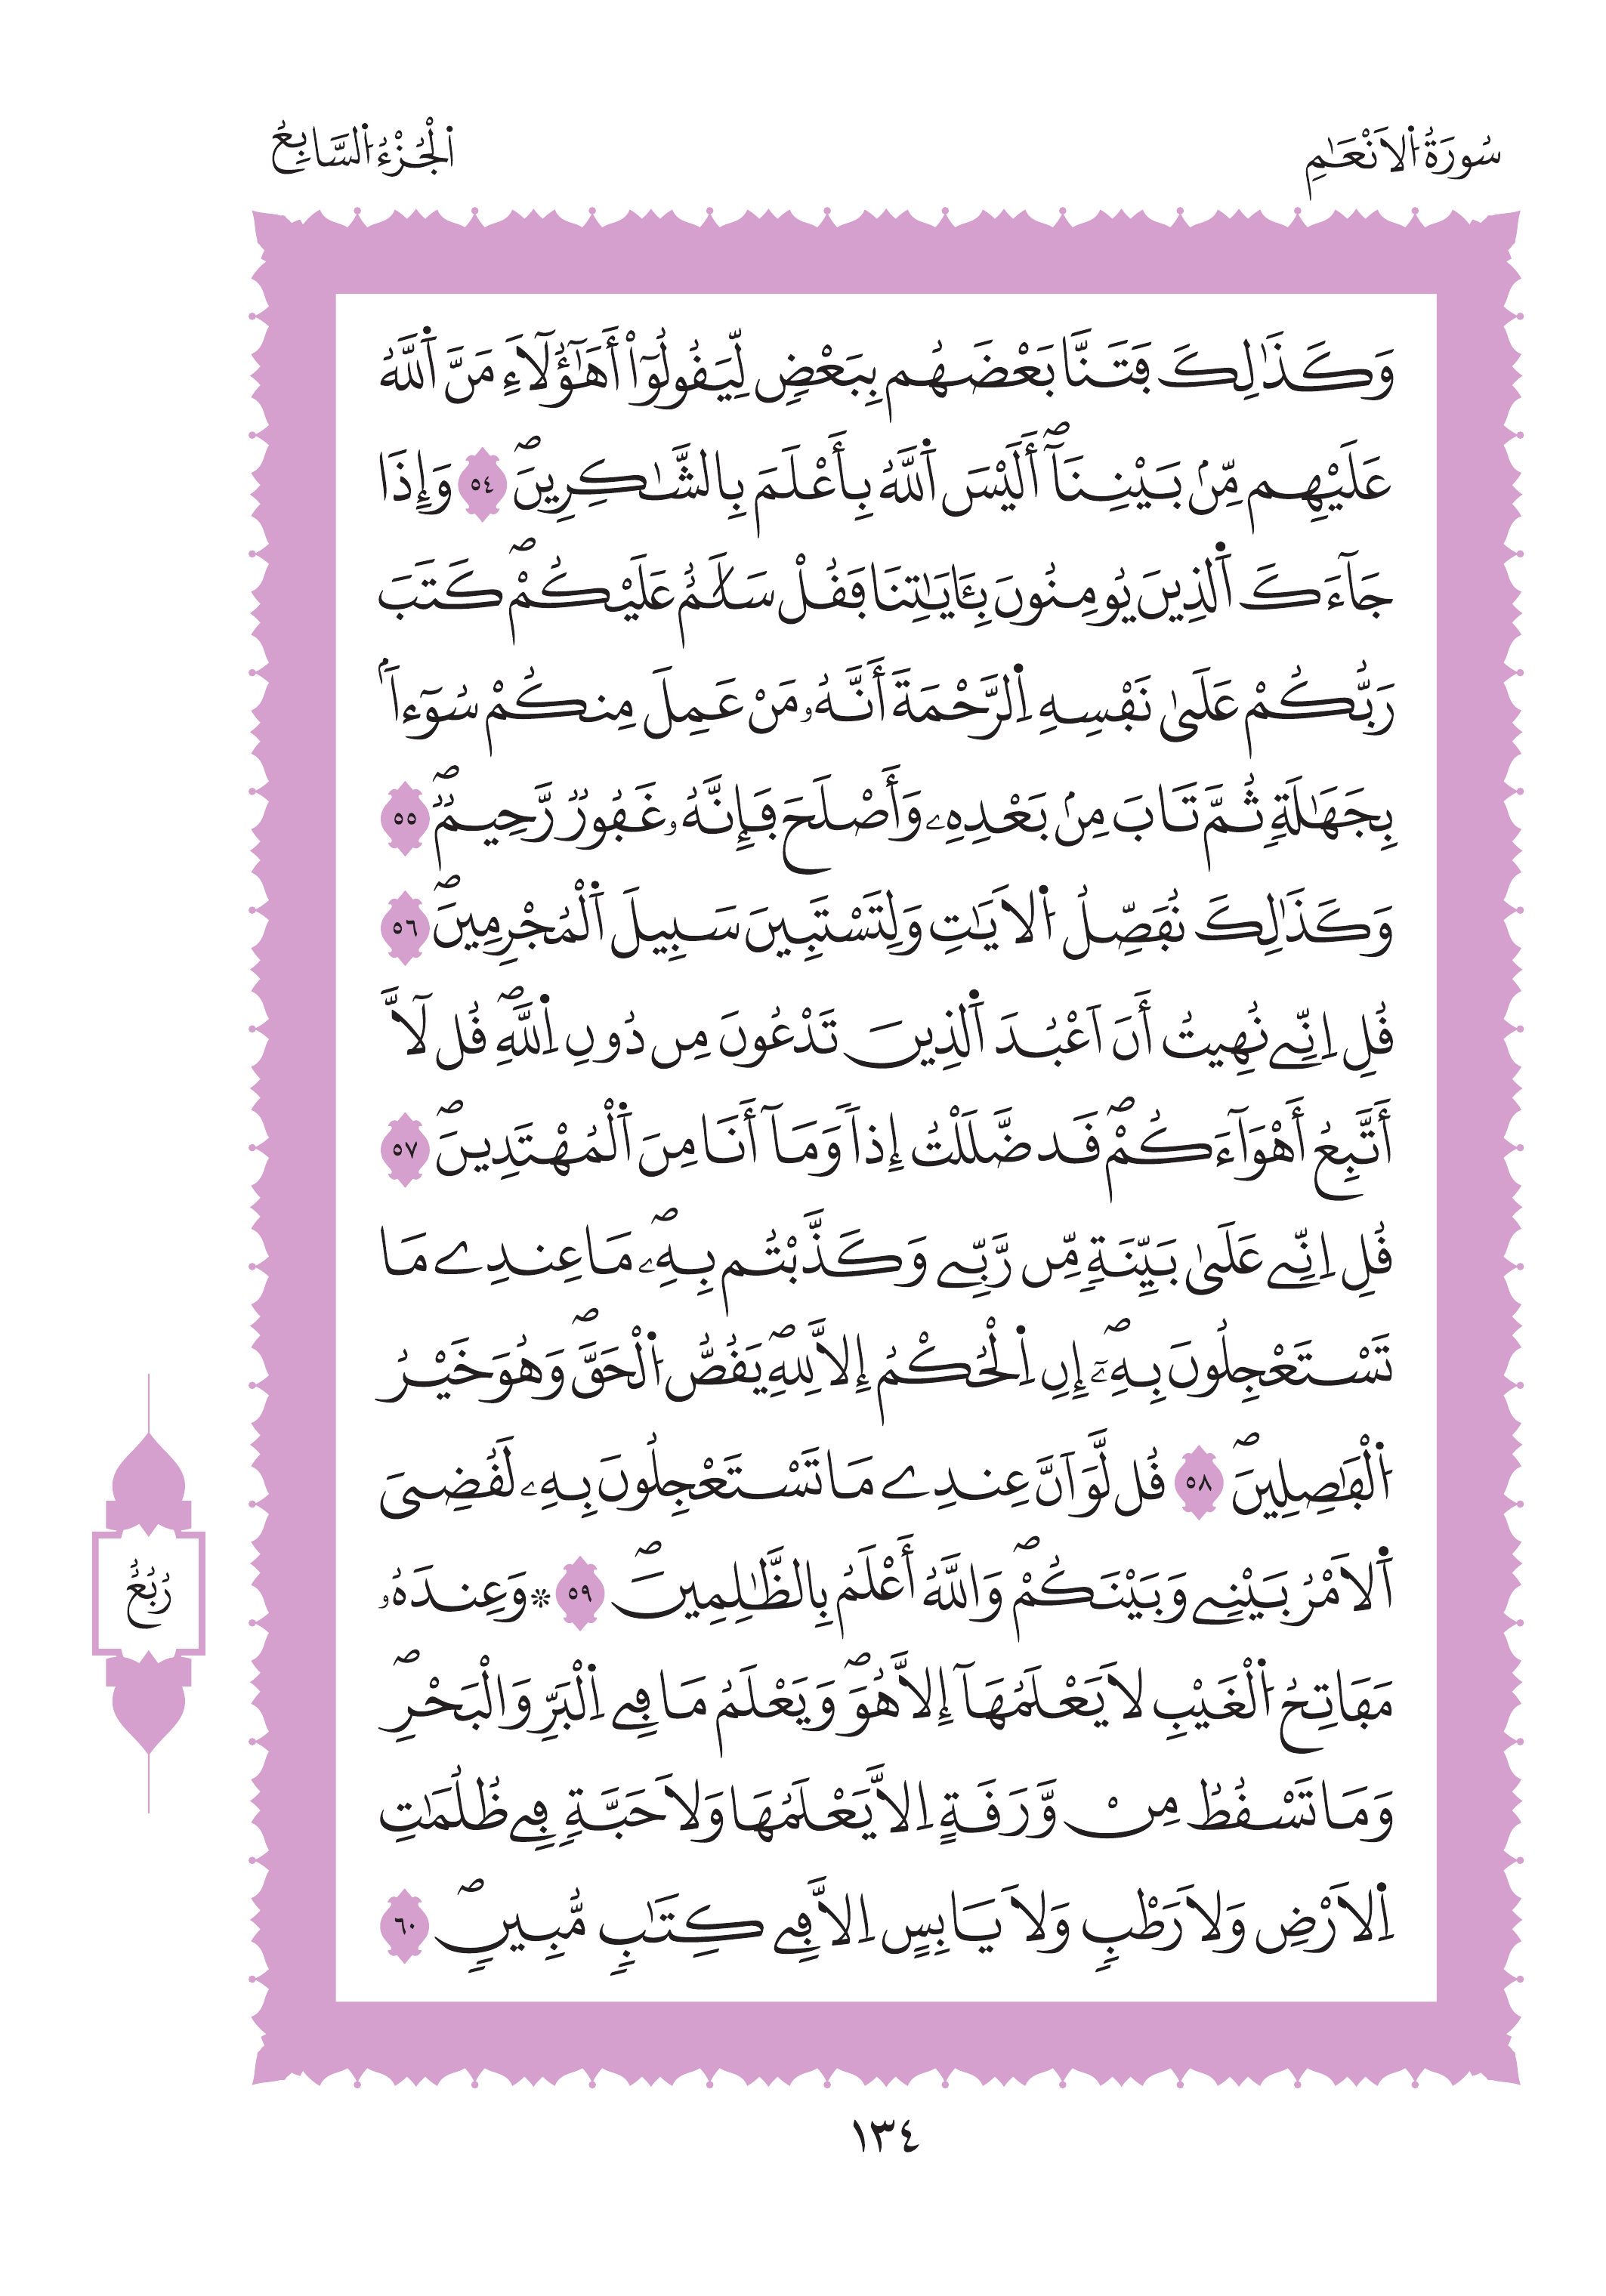 سُورَةُ اُ۬لَانْعَٰمِ
اَ۬لْجُزْءُ اُ۬لسَّابِعُ
وَكَذَٰلِكَ فَتَنَّا بَعْضَهُم بِبَعْضٖ لِّيَقُولُوٓاْ أَهَٰٓؤُلَآءِ مَنَّ اَ۬للَّهُ
عَلَيْهِم مِّنۢ بَيْنِنَآۖ أَلَيْسَ اَ۬للَّهُ بِأَعْلَمَ بِالشَّٰكِرِينَۖ ٥٤ وَإِذَا
جَآءَكَ اَ۬لذِينَ يُومِنُونَ بِـَٔايَٰتِنَا فَقُلْ سَلَٰمٌ عَلَيْكُمْۖ كَتَبَ
رَبُّكُمْ عَلَىٰ نَفْسِهِ اِ۬لرَّحْمَةَ أَنَّهُۥ مَنْ عَمِلَ مِنكُمْ سُوٓءاَۢ
بِجَهَٰلَةٖ ثُمَّ تَابَ مِنۢ بَعْدِهِۦ وَأَصْلَحَ فَإِنَّهُۥ غَفُورٞ رَّحِيمٞۖ ٥٥
وَكَذَٰلِكَ نُفَصِّلُ اُ۬لَايَٰتِ وَلِتَسْتَبِينَ سَبِيلَ اَ۬لْمُجْرِمِينَۖ ٥٦
قُلِ اِنِّے نُهِيتُ أَنَ اَعْبُدَ اَ۬لذِينَ تَدْعُونَ مِن دُونِ اِ۬للَّهِۖ قُل لَّآ
أَتَّبِعُ أَهْوَآءَكُمْۖ قَد ضَّلَلْتُ إِذاٗ وَمَآ أَنَا مِنَ اَ۬لْمُهْتَدِينَۖ ٥٧
قُلِ اِنِّے عَلَىٰ بَيِّنَةٖ مِّن رَّبِّے وَكَذَّبْتُم بِهِۦۖ مَا عِندِے مَا
تَسْتَعْجِلُونَ بِهِۦٓۖ إِنِ اِ۬لْحُكْمُ إِلَّا لِلهِۖ يَقُصُّ اُ۬لْحَقَّۖ وَهُوَ خَيْرُ
اُ۬لْفَٰصِلِينَۖ ٥٨ قُل لَّوَ اَنَّ عِندِے مَا تَسْتَعْجِلُونَ بِهِۦ لَقُضِيَ
اَ۬لَامْرُ بَيْنِے وَبَيْنَكُمْۖ وَاللَّهُ أَعْلَمُ بِالظَّٰلِمِينَۖ ٥٩ * وَعِندَهُۥ
مَفَاتِحُ اُ۬لْغَيْبِ لَا يَعْلَمُهَآ إِلَّا هُوَۖ وَيَعْلَمُ مَا فِے اِ۬لْبَرِّ وَالْبَحْرِۖ
وَمَا تَسْقُطُ مِنْ وَّرَقَةٍ اِلَّا يَعْلَمُهَا وَلَا حَبَّةٖ فِے ظُلُمَٰتِ
اِ۬لَارْضِ وَلَا رَطْبٖ وَلَا يَابِسٍ اِلَّا فِے كِتَٰبٖ مُّبِينٖۖ ٦٠
رُبُعُ
١٣٤